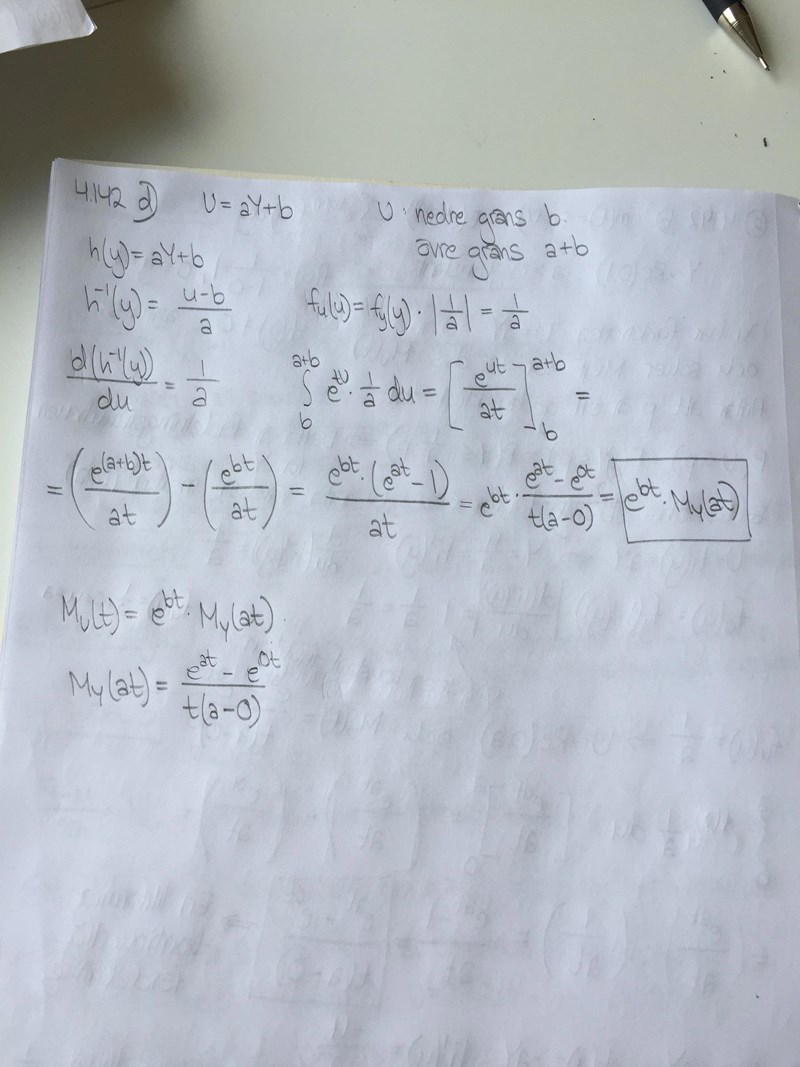 4.142 d) U = aY+b U: nedre gräns b.
övre gräns a+b
h(y) = aY+b
h⁻¹(y) = (u-b)/a f_U(u) = f_y(y) · |1/a| = 1/a
d(h⁻¹(y))/du = 1/a ∫_b^{a+b} e^{tU} · 1/a du = [e^{ut}/at]_b^{a+b} =
= (e^{(a+b)t}/at) - (e^{bt}/at) = e^{bt} · (e^{at} - 1)/at = e^{bt} · (e^{at} - e^{0t})/t(a-0) = e^{bt} · M_Y(at)
M_U(t) = e^{bt} · M_Y(at).
M_Y(at) = (e^{at} - e^{0t})/t(a-0)